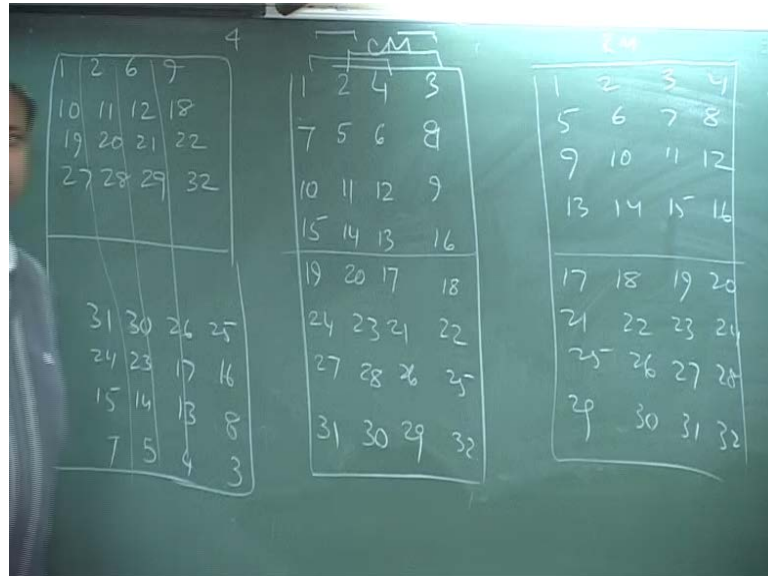 4
1 2 6 9
10 11 12 18
19 20 21 22
27 28 29 32
31 30 26 25
24 23 17 16
15 14 13 8
7 5 4 3
CM
1 2 4 3
7 5 6 8
10 11 12 9
15 14 13 16
19 20 17 18
24 23 21 22
27 28 26 25
31 30 29 32
1 2 3 4
5 6 7 8
9 10 11 12
13 14 15 16
17 18 19 20
21 22 23 24
25 26 27 28
29 30 31 32